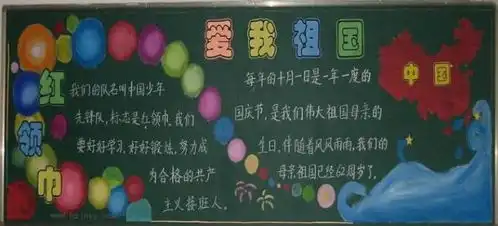 爱我祖国
红领巾
我们的队名叫中国少年
先锋队，标志是红领巾，我们
要好好学习，好好锻炼，努力成
为合格的共产
主义接班人。
每年的十月一日是一年一度的
国庆节，是我们伟大祖国母亲的
生日，伴随着风风雨雨，我们的
母亲祖国已经62周岁了。
中国